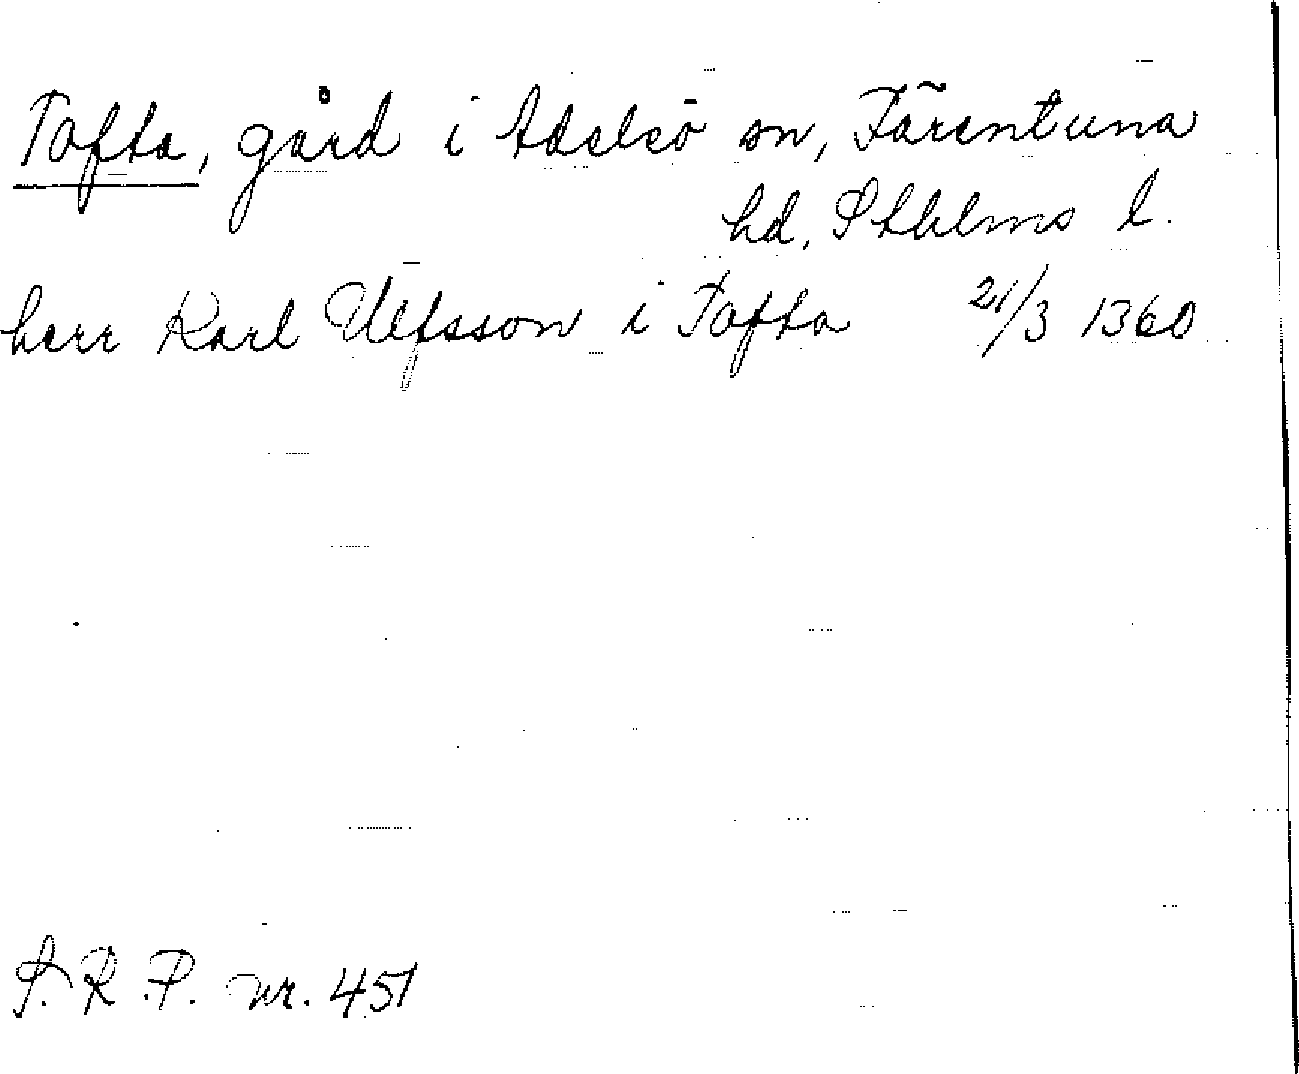 Tofta, gård i Adelsö sn, Färentuna
hd, Sthlms l.
herr Karl Ulfsson i Tofta 21/3 1360
S.R.P. nr. 451